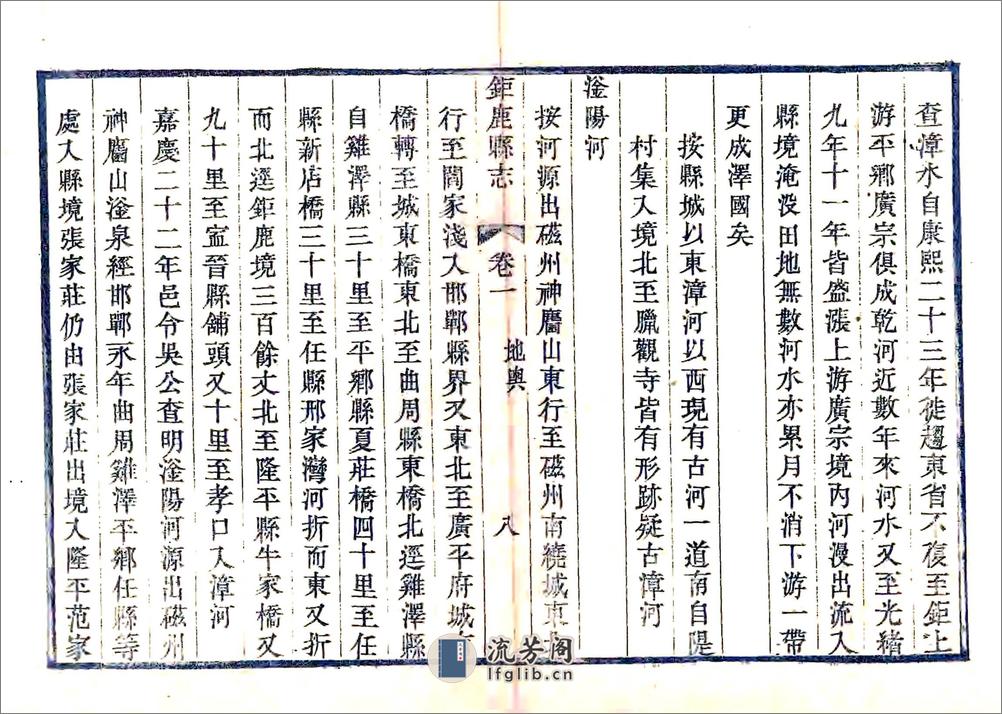 查漳水自康熙二十三年徙趨東省不復至鉅上
游平鄉廣宗俱成乾河近數年來河水又至光緒
九年十一年皆盛漲上游廣宗境內河漫出流入
縣境淹没田地無數河水亦累月不消下游一帶
更成澤國矣
按縣城以東漳河以西現有古河一道南自隄
村集入境北至臘觀寺皆有形跡疑古漳河
滏陽河
按河源出磁州神麕山東行至磁州南繞城東
行至閻家淺入邯鄲縣界又東北至廣平府城
橋轉至城東橋東北至曲周縣東橋北逕雞澤縣
自雞澤縣三十里至平鄉縣夏莊橋四十里至任
縣新店橋三十里至任縣邢家灣河折而東又折
而北逕鉅鹿境三百餘丈北至隆平縣牛家橋又
九十里至寍晉縣舖頭又十里至孝口入漳河
嘉慶二十二年邑令吳公查明滏陽河源出磁州
神麕山滏泉經邯鄲永年曲周雞澤平鄉任縣等
處入縣境張家莊仍由張家莊出境入隆平范家
鉅鹿縣志
卷一
地輿
八
流芳阁
lfglib.cn